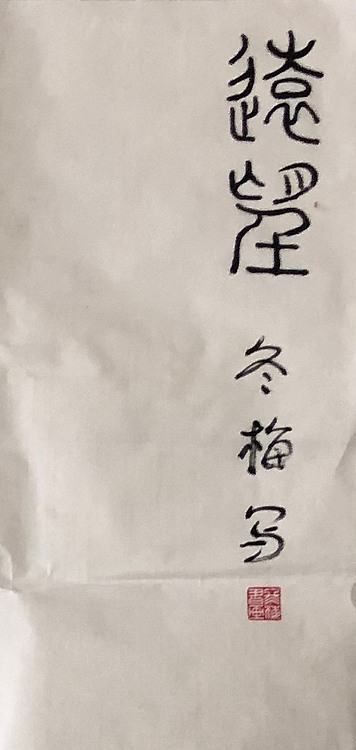 遠望
冬梅写